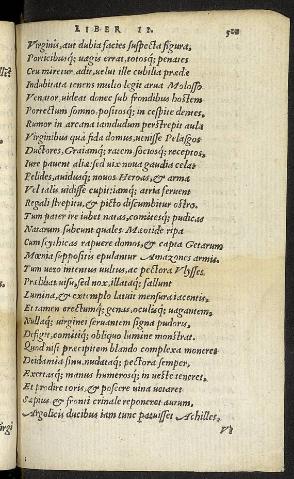 LIBER II.
Virginis, aut dubia facies suspecta figura,
Porticibusq; uagis errat, totosq; penates
Ceu miretur, adit, uelut ille cubilia prædæ
Indubitata tenens mutio legit arua Molosso
Venator, uideat donec sub frondibus hostem
Porrectum somno, positosq; in cespite dentes,
Rumor in arcana iamdudum perstrepit aula
Virginibus qua fida domus, uenisse Pelasgos
Ductores, Graiamq; ratem sociosq; receptos,
Iure pauent aliæ: sed uix noua gaudia celat
Pelides, auidusq; nouos Heroas, & arma
Vel talis uidisse cupit: iamq; atria feruent
Regali strepitu, & picto discumbitur ostro.
Tum pater ire iubet natas, comitesq; pudicas
Natarum subeunt quales Mæotide ripa
Cum scythicas rapuere domos, & capta Getarum
Mœnia suppositis epulantur Amazones armis.
Tum uero intentus uultus, ac pectora Vlysses
Prælibat uisu, sed nox, illataq; fallunt
Lumina, & extemplo latuit mensura iacentis,
Et tamen erectumq; genas, oculisq; uagantem,
Nullaq; uirginei seruantem signa pudoris,
Defigit, comitiq; obliquo lumine monstrat.
Quod nisi præcipitem blando complexa moneret
Deidamia sinu, nudataq; pectora semper,
Exertasq; manus humerosq; in ueste teneret,
Et prodire toris, & poscere uina uetaret
Sæpius & fronti crinale reponeret aurum,
Argolicis ducibus iam tunc patuisset Achilles,